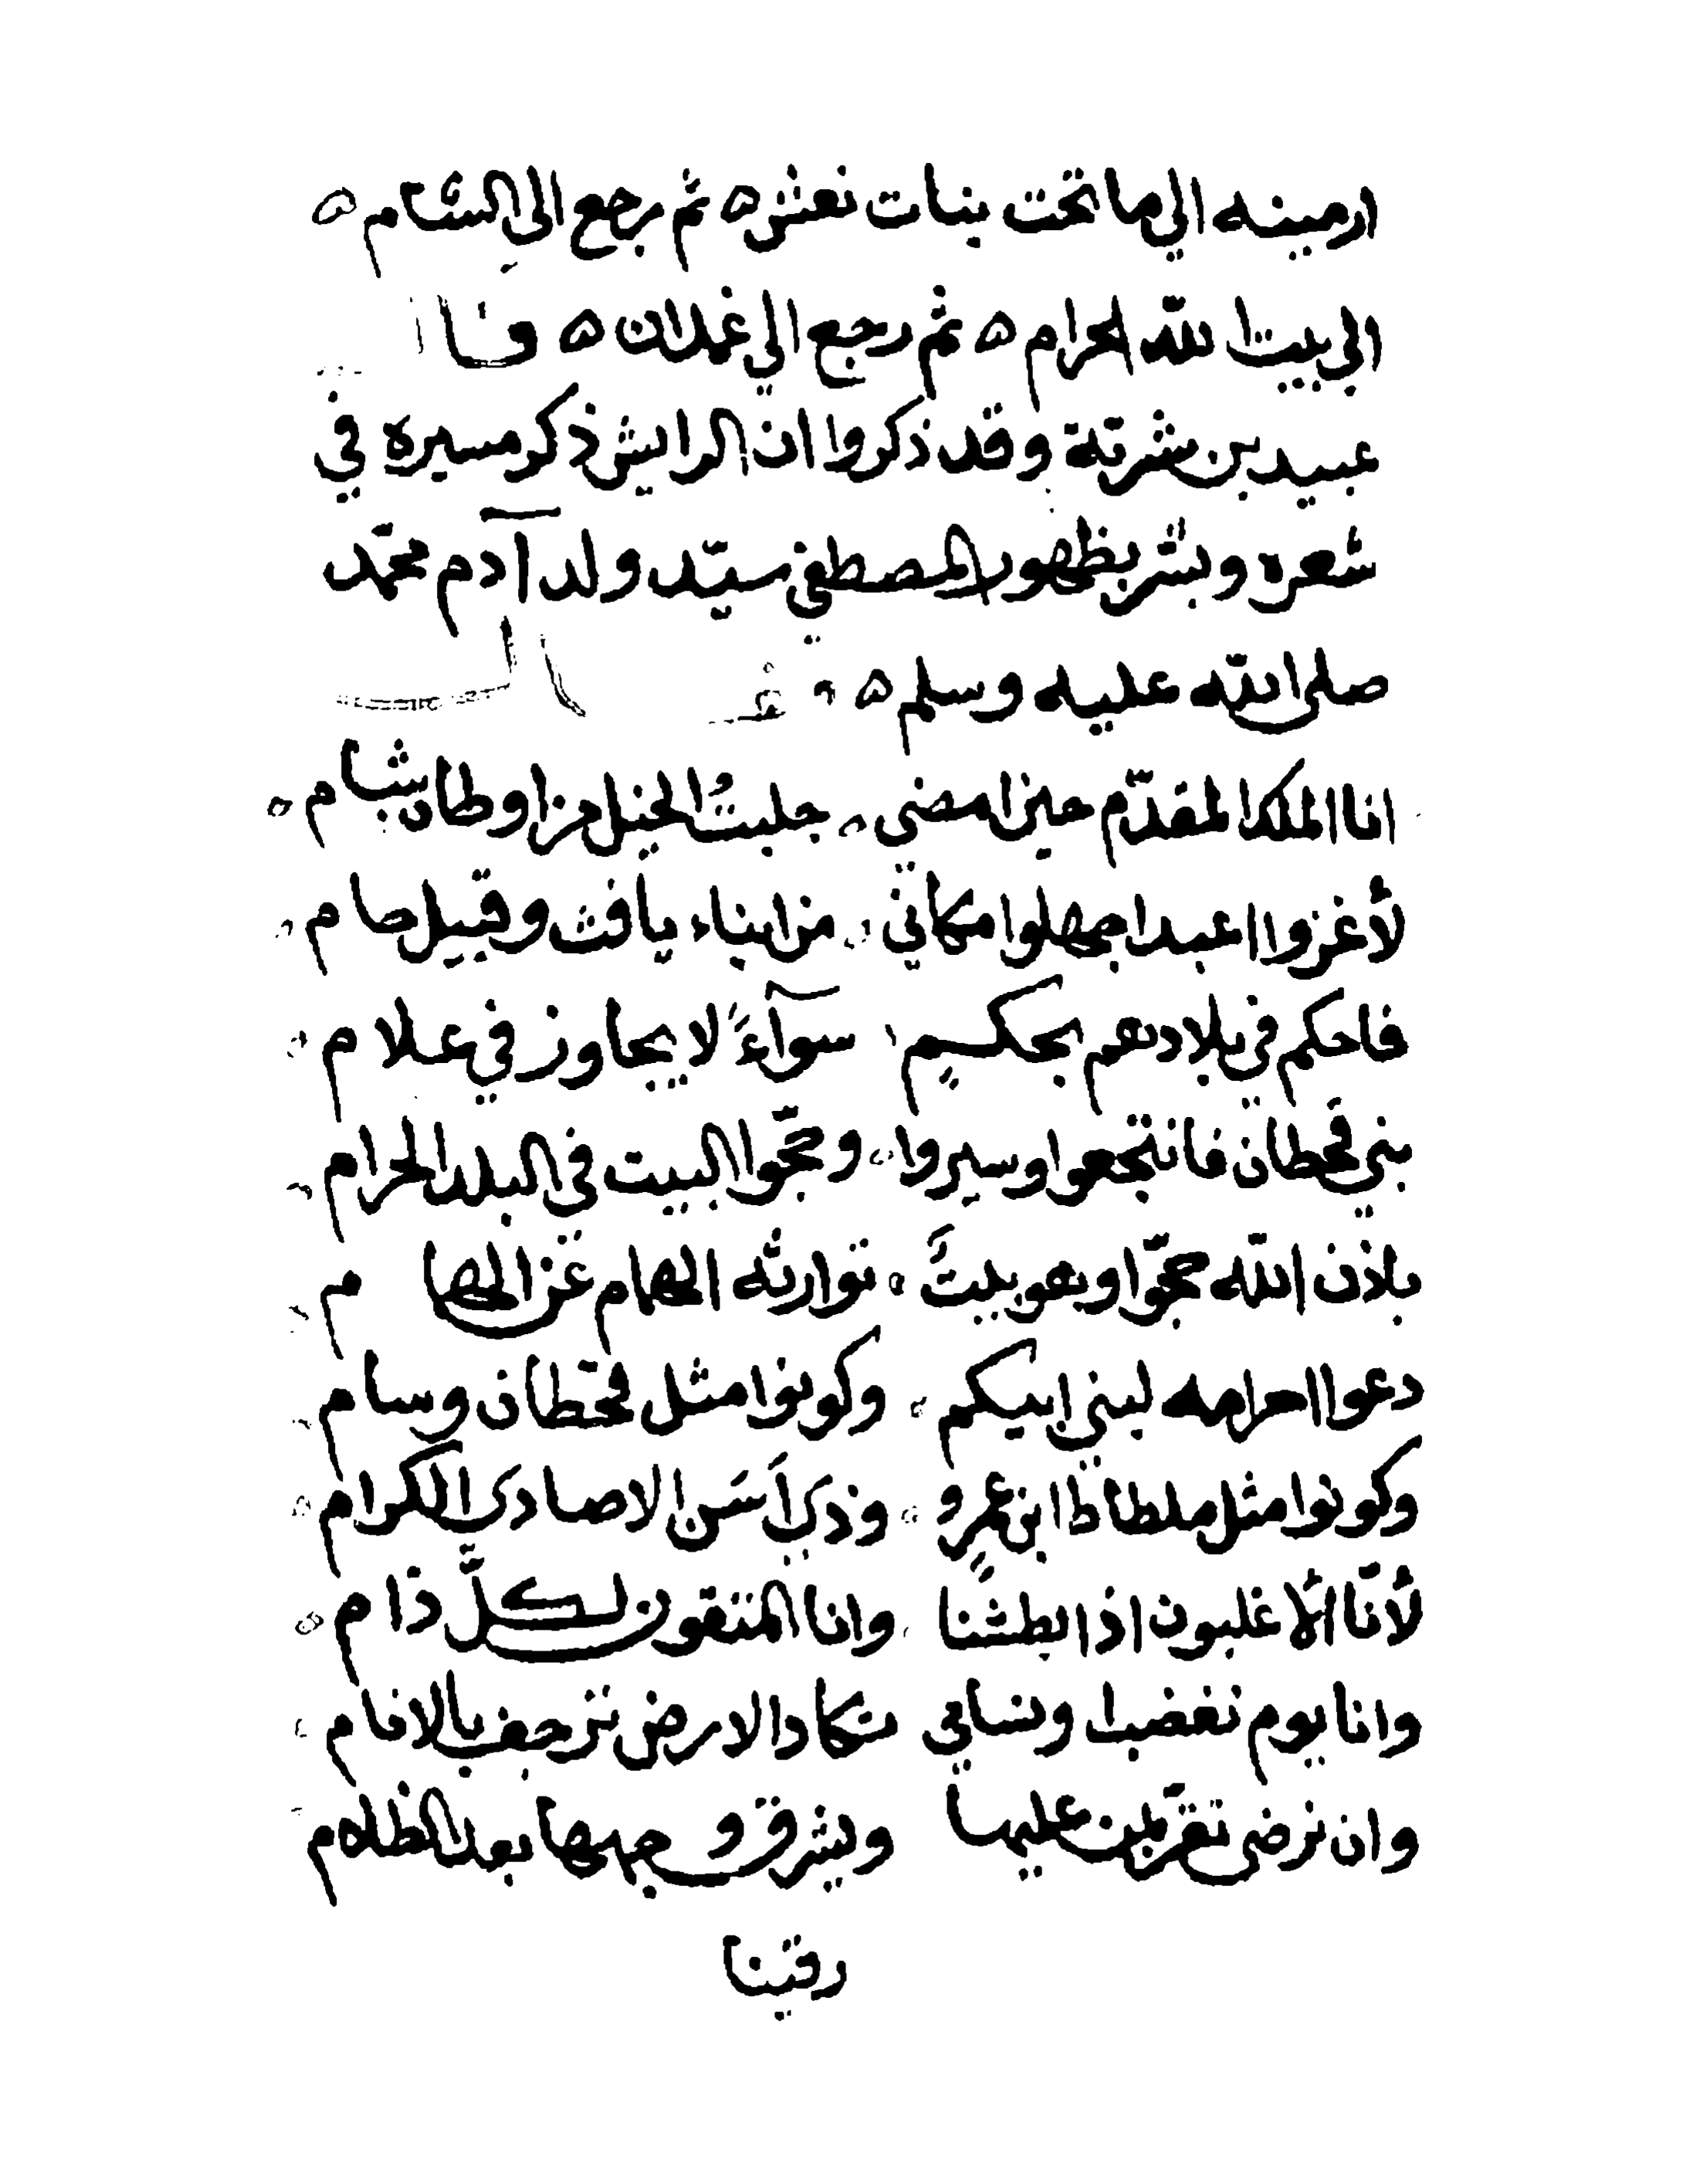 ارمينه الي ما تحت بنات نعش ه ثم رجع الى الشام ه
الي بيت الله الحرام ه ثم رجع الي غمدان ه وقال
عبيد بن شرية وقد ذكروا ان الرايش ذكر مسيره في
شعره وبشر بظهور المصطفي سيّد ولد آدم محمّد
صلى الله عليه وسلم ه
انا الملك المقدّم حين امضى جلبتُ الخيل من اوطان شام
لأغزوا اعبدا جهلوا مكاني من ابناء يافث وقبيل حام
فاحكم في بلادهم بحكمٍ سوآءً لا يجاوز في علام
بني قحطان فانتجعوا وسيروا وحجّوا البيت في البلد الحرام
باذن الله حجّوا وهو بيتٌ توارثه الهمام عن الهمام
دعوا احرامه لبني ابيكم وكونوا مثل قحطان وسام
وكونوا مثل ملطاط ابن عمرٍو وذي أسَن الاصادي الكرام
لأنّا الأغلبون اذا بطشنا وانا المتقون لكلّ ذام
وانا يوم نغضب او نسامي تكاد الارض ترجف بالانام
وان نرضى تقرّ بمن عليها ويشرق وجهها بعد الظلام
رقينا